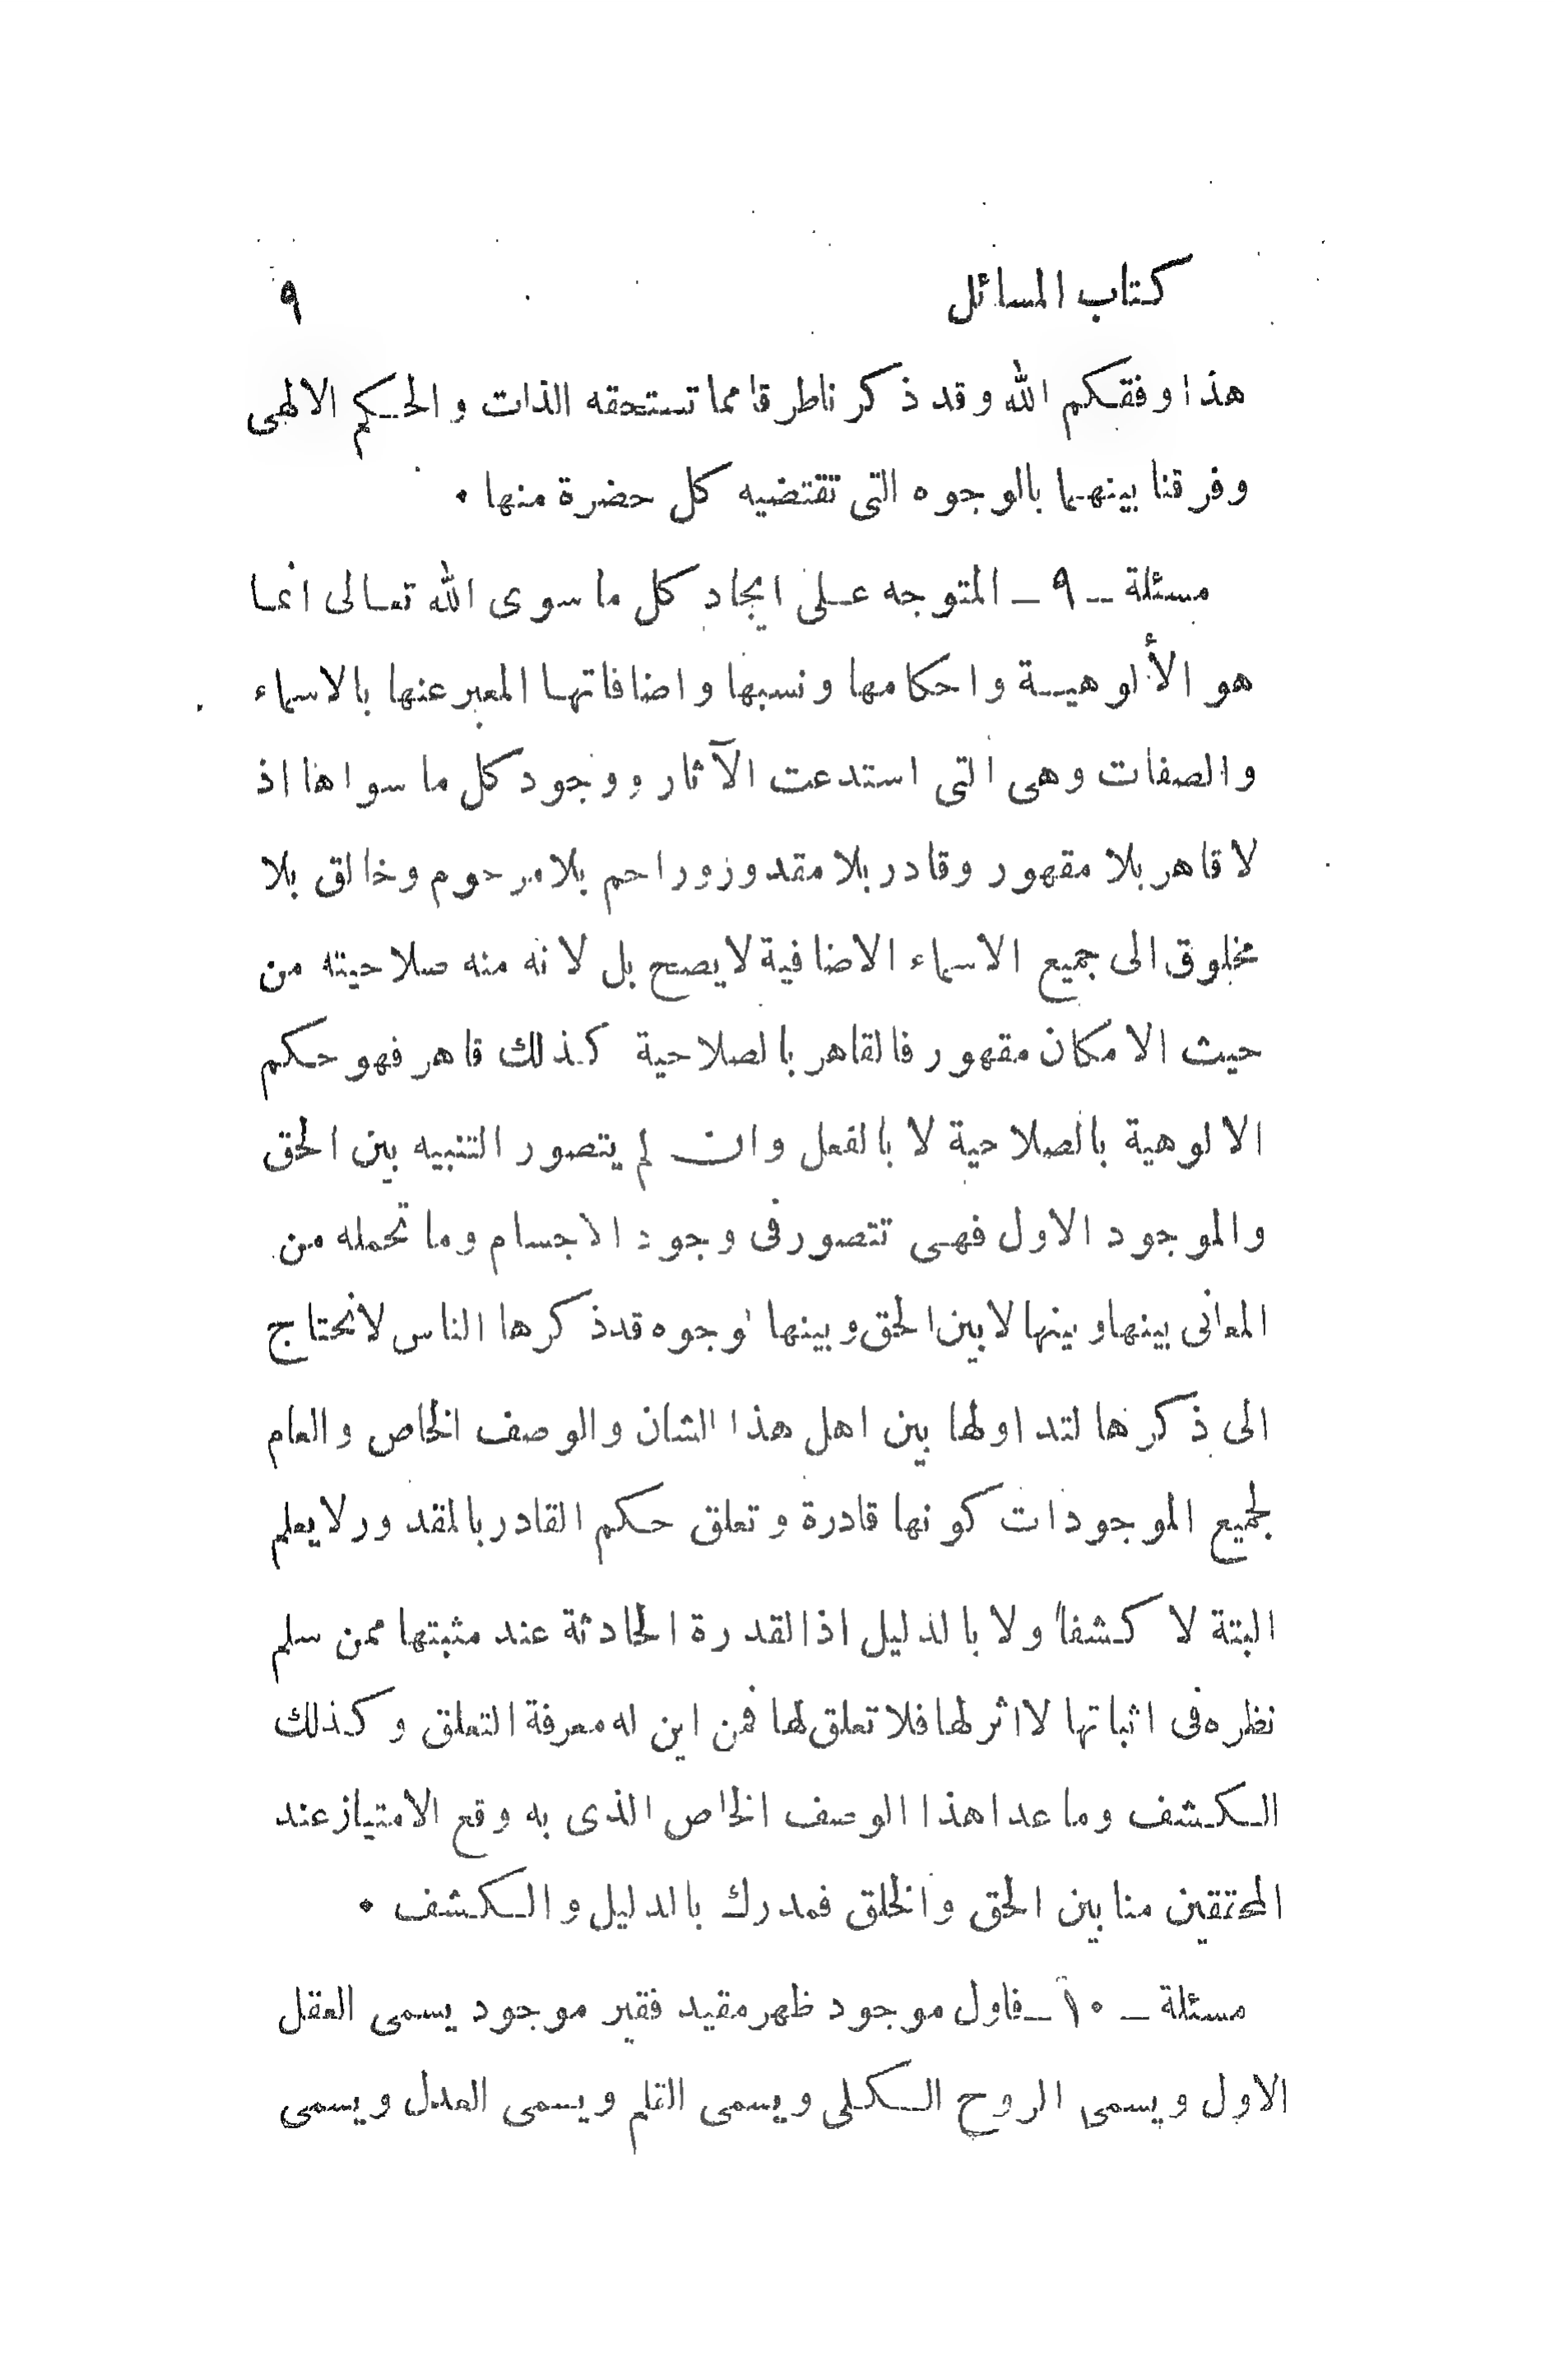 كتاب المسائل ٩
هذا وفقكم الله وقد ذكرنا طرقا مما تستحقه الذات والحكم الالهى
وفرقنا بينهما بالوجوه التى تقتضيه كل حضرة منها ٠
مسئلة ــ ٩ ــ المتوجه على ايجاد كل ما سوى الله تعالى انما
هو الألوهية واحكامها ونسبها واضافاتها المعبر عنها بالاسماء
والصفات وهى التى استدعت الآثار ووجود كل ما سواها اذ
لا قاهر بلا مقهور وقادر بلا مقدوز وراحم بلا مرحوم وخالق بلا
مخلوق الى جميع الاسماء الاضافية لا يصح بل لانه منه صلاحيته من
حيث الامكان مقهور فالقاهر بالصلاحية كذلك قاهر فهو حكم
الالوهية بالصلاحية لا بالفعل وان لم يتصور التنبيه بين الحق
والموجود الاول فهى تتصور فى وجود الاجسام وما تحمله من
المعانى بينها وبينها لا بين الحق وبينها لوجوه قد ذكرها الناس لا نحتاج
الى ذكرها لتداولها بين اهل هذا الشان والوصف الخاص والعام
لجميع الموجودات كونها قادرة وتعلق حكم القادر بالمقدور لا يعلم
البتة لا كشفا ولا بالدليل اذ القدرة الحادثة عند مثبتها ممن سلم
نظره فى اثباتها لا اثر لها فلا تعلق لها فمن اين له معرفة التعلق وكذلك
الكشف وما عدا هذا الوصف الخاص الذى به وقع الامتياز عند
المحققين منا بين الحق والخلق فمدرك بالدليل والكشف ٠
مسئلة ــ ١٠ ــ فاول موجود ظهر مقيد فقير موجود يسمى العقل
الاول ويسمى الروح الكلى ويسمى القلم ويسمى العدل ويسمى